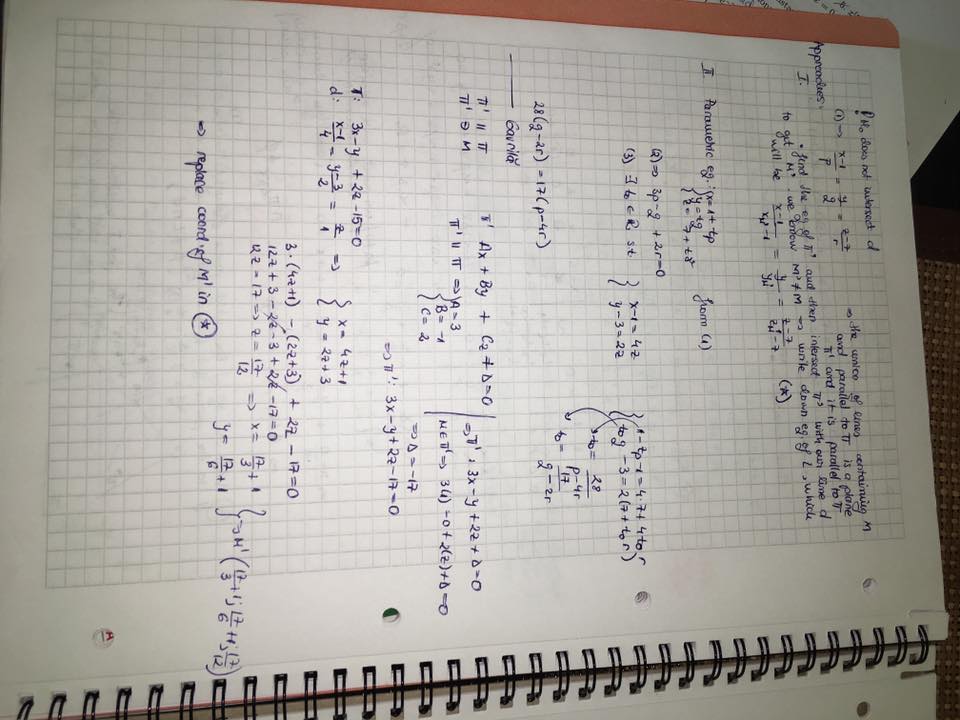 ! Mo does not intersect d
(1) ⇒ x-1/p = y/q = z-7/r
⇒ the union of lines containing M
and parallel to π is a plane
π' and it is parallel to π
Approaches:
I. • find the eq of π' and then intersect π' with our line d
to get M'. We know M' ≠ M ⇒ write down eq of l, which
will be x-1/xM'-1 = y/yM' = z-7/zM'-7 (*)
II. Parametric eq: { x=1+tp
y=tq
z=7+tr
from (1)
(2) ⇒ 3p-q+2r=0
(3) ∃ t₀ ∈ ℝ st { x-1=4z
y-3=2z
{ 1-t₀p-1=4·7+4t₀r
t₀q-3=2(7+t₀r)
⇒ t₀ = 28/p-4r
t₀ = 17/q-2r
28(q-2r) = 17(p-4r)
Gavrilă
π' ∥ π
π' ∋ M
π' Ax + By + Cz + D = 0
π' ∥ π ⇒ { A=3
B=-1
C=2
⇒ π': 3x-y+2z+D=0
M∈π' ⇒ 3(1)-0+2(7)+D=0
⇒ D=-17
⇒ π': 3x-y+2z-17=0
π: 3x-y+2z-15=0
d: x-1/4 = y-3/2 = z/1 ⇒ { x=4z+1
y=2z+3
3·(4z+1) - (2z+3) + 2z - 17=0
12z+3-2z-3+2z-17=0
12z=17 ⇒ z=17/12 ⇒ x=17/3+1
y=17/6+1
} ⇒ M'(17/3+1; 17/6+1; 17/12)
⇒ replace coord of M' in (*)